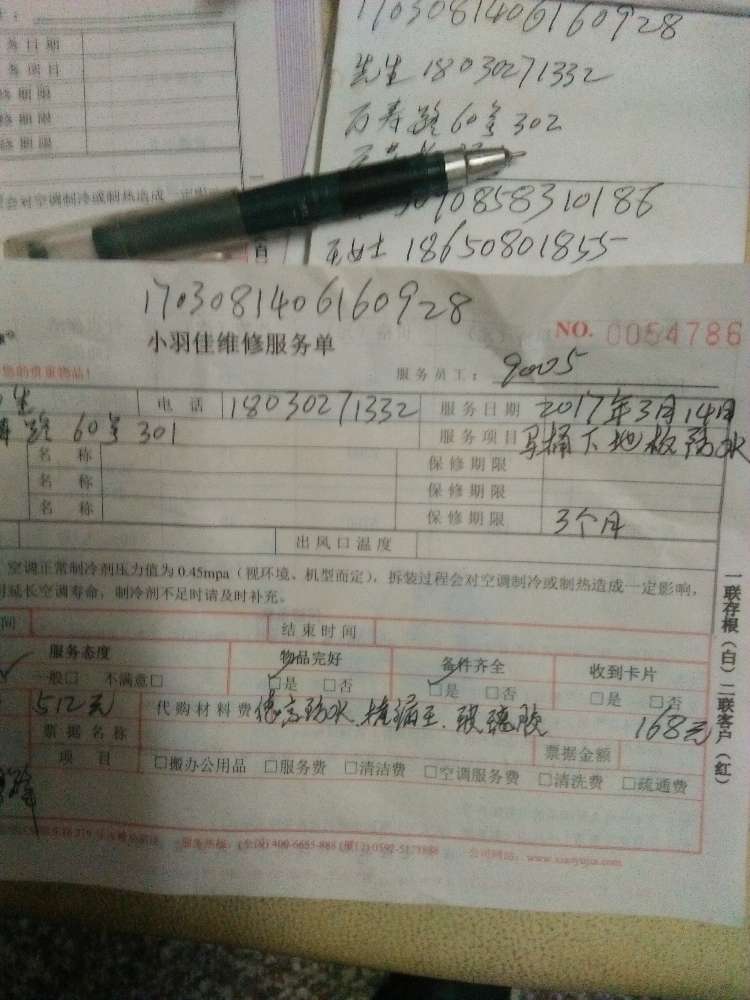 务日期
务项目
修期限
修期限
修期限
会对空调制冷或制热造成一定影
1703081406160928
先生 18030271332
万寿路60号302
090858310186
王女士 18650801855
1703081406160928
小羽佳维修服务单
NO. 0054786
您的贵重物品!
服务员工: 9005
生 电话 18030271332 服务日期 2017年3月14日
寿路60号301 服务项目 马桶下地板防水
名称 保修期限
名称 保修期限
名称 保修期限 3个月
出风口温度
空调正常制冷剂压力值为0.45mpa(视环境、机型而定),拆装过程会对空调制冷或制热造成一定影响,
延长空调寿命,制冷剂不足时请及时补充。
间 结束时间
服务态度 物品完好 备件齐全 收到卡片
一般□ 不满意□ □是 □否 □是 □否 □是 □否
512元 代购材料费 德高防水、堵漏王、玻璃胶 168元
票据名称 票据金额
项目 □搬办公用品 □服务费 □清洁费 □空调服务费 □清洗费 □疏通费
服务热线:(全国)400-6655-888 公司网站:www.xiaoyujia.com
一联存根(白)二联客户(红)